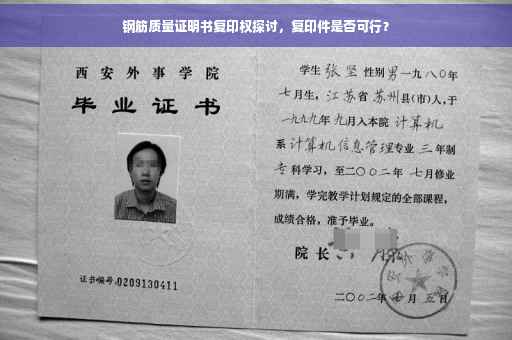 钢筋质量证明书复印权探讨，复印件是否可行？
西安外事学院
毕业证书
证书编号:0209130411
学生 张坚 性别 男 一九八〇年
七月生，江苏省 苏州县(市)人,于
一九九九年 九月入本院 计算机
系 计算机信息管理专业 三 年制
专科学习，至二〇〇二年 七月修业
期满，学完教学计划规定的全部课程，
成绩合格，准予毕业。
院长
二〇〇二年 月 五日